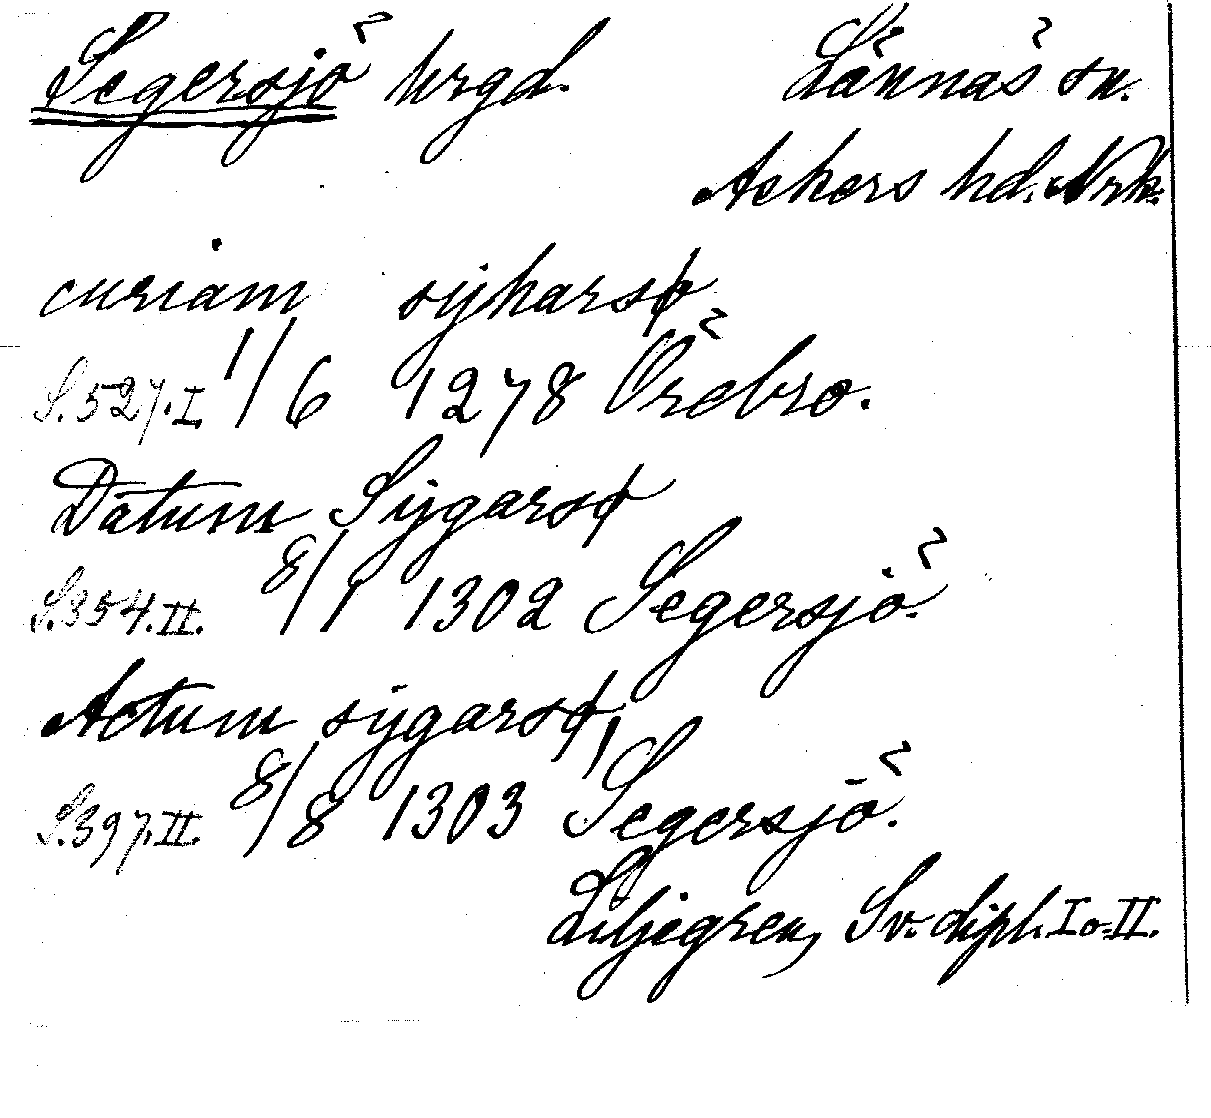 Segersjö hrgd. Lännäs sn.
Askers hd. Nrk.
curiam syharsø
S. 527. I. 1/6 1278 Örebro.
Datum Sygarsø
S. 354. II. 8/1 1302 Segersjö.
Actum sygarsø,
S. 397. II. 8/8 1303 Segersjö.
Liljegren, Sv. dipl. I o. II.